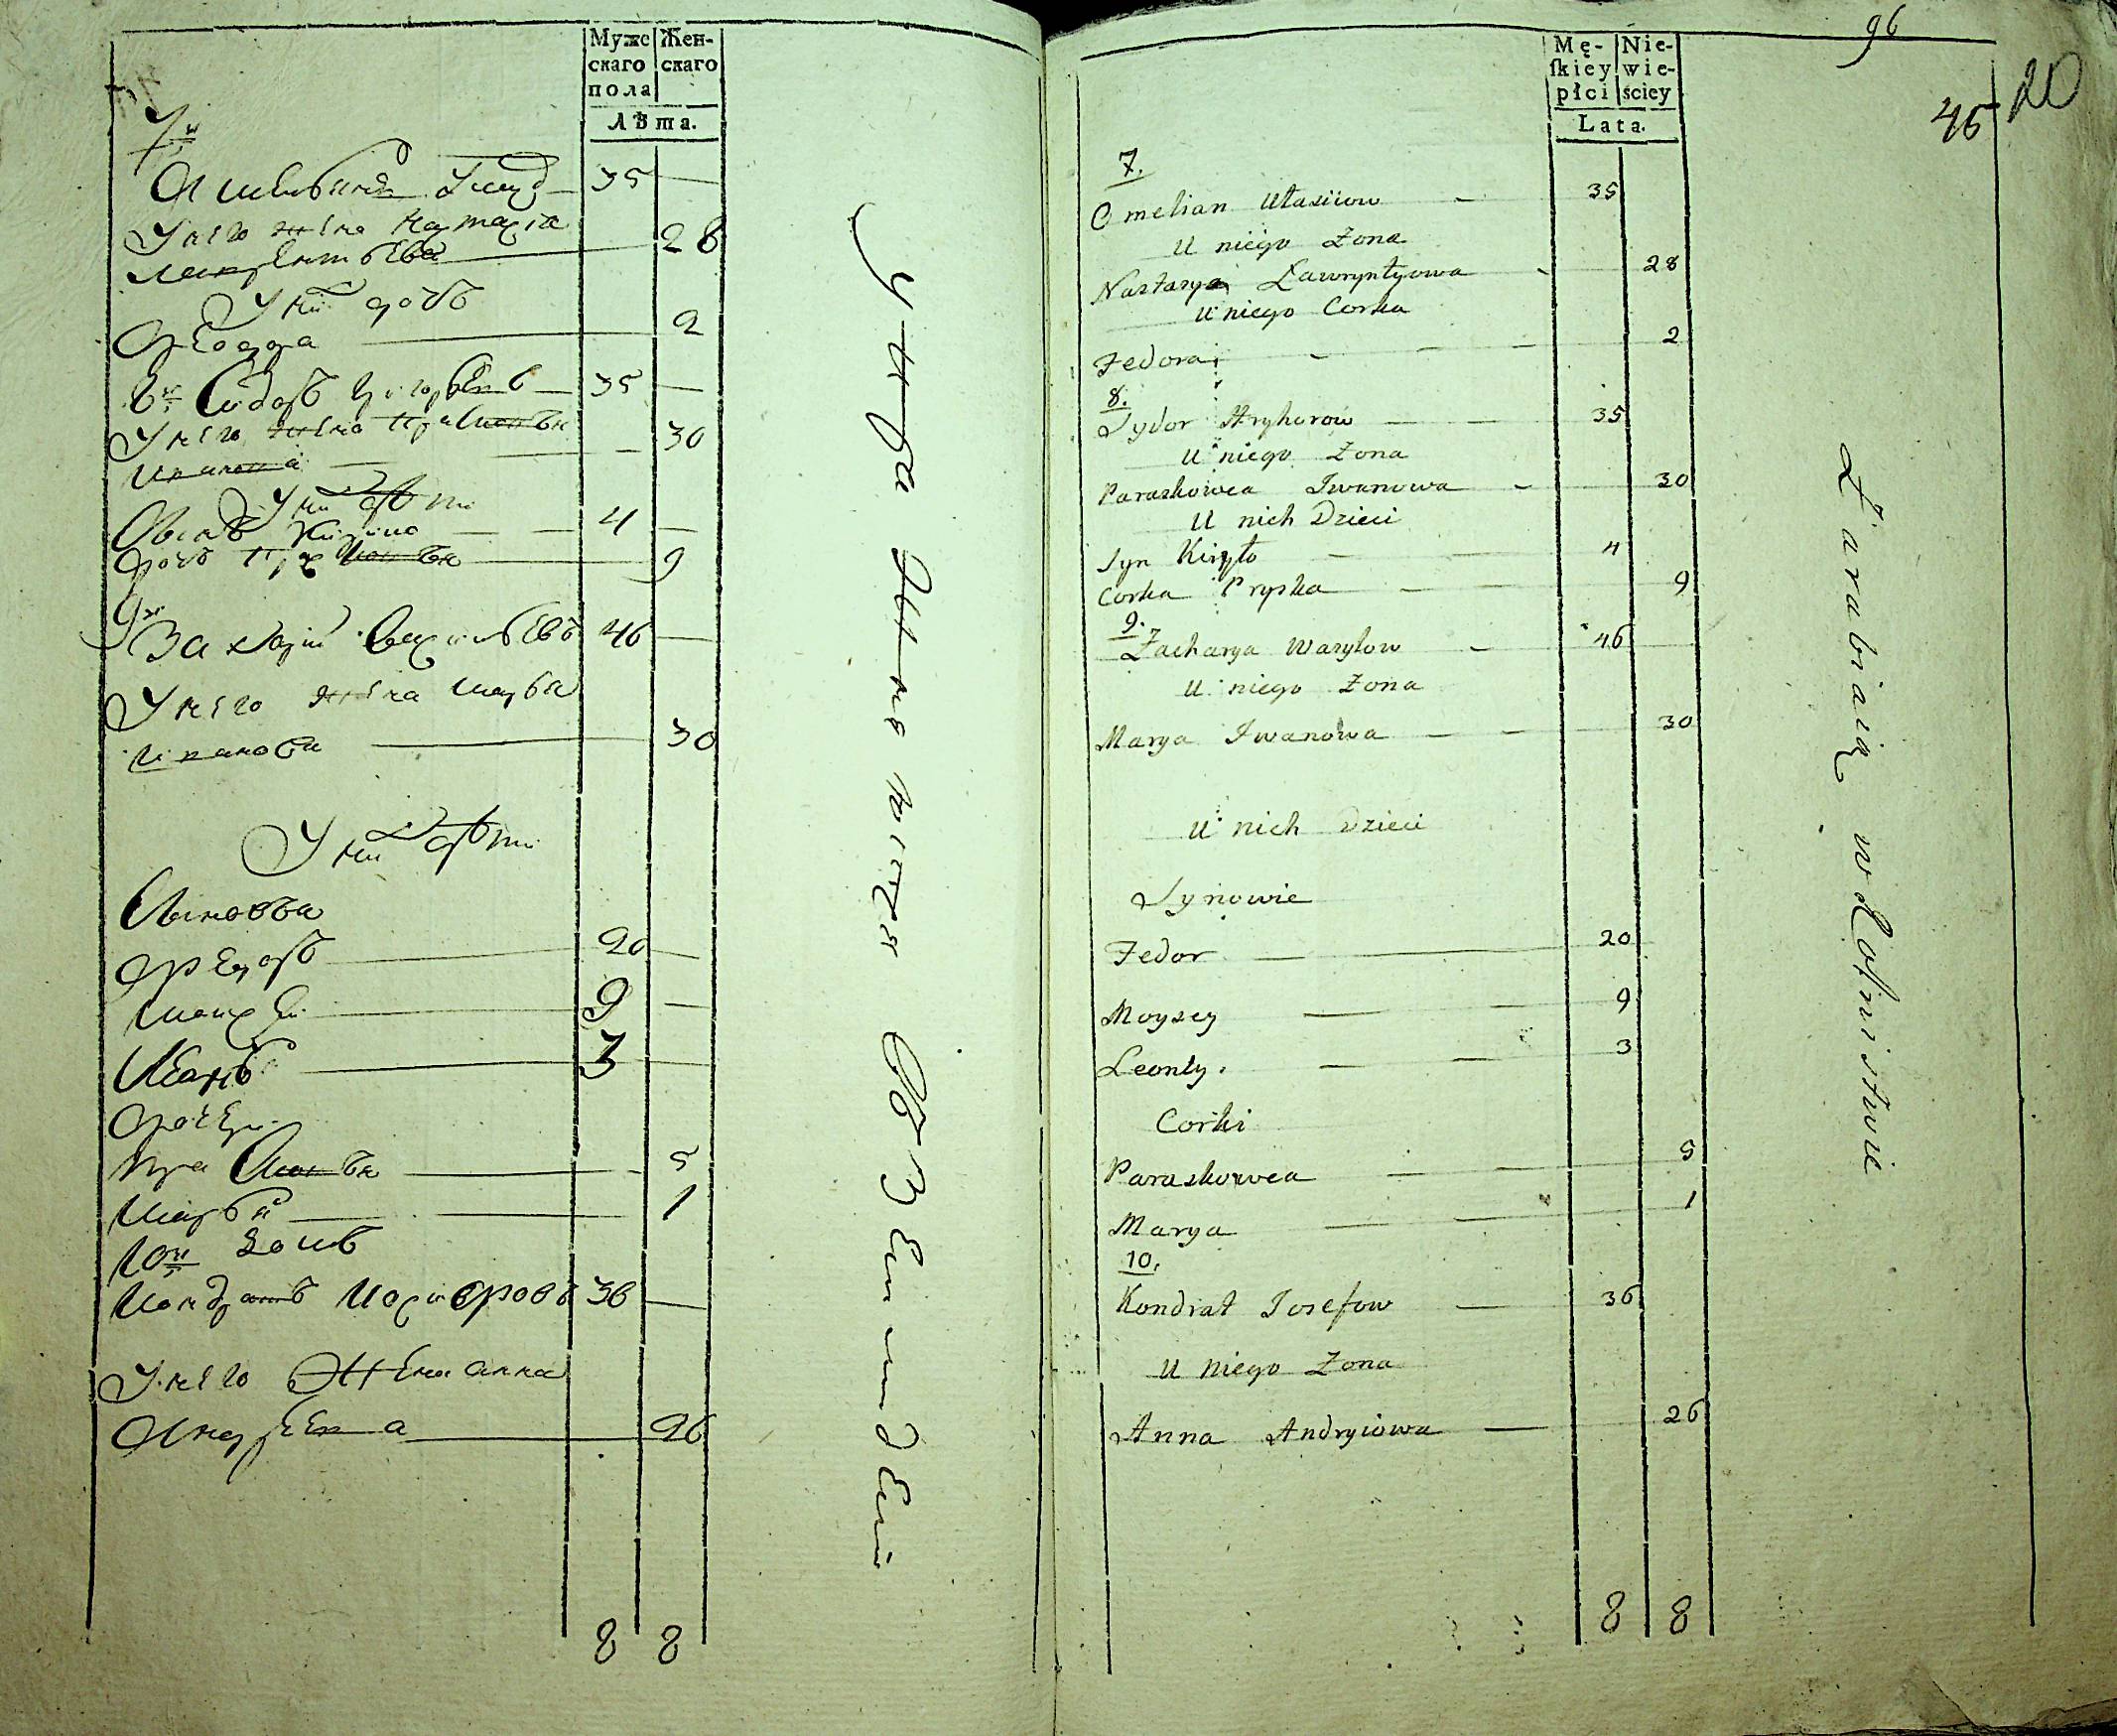 Мужс Жен-
скаго скаго
пола
Лѣта.
7й
35
У него жена Настасіа
28
У ни дочь
Ѳеодора 2
8й Сидоръ 35
У него жена
30
У них дѣти
Сынъ Кирило 4
дочь 9
9й
Захарій Васильевъ 46
У него жена Марья
Иванова 30
У них дѣти
Сыновья
Ѳедоръ 20
Моисей 9
3
дочери
Прасковья 5
Марья 1
10й домъ
Кондратъ Иосифовъ 36
У него жена Анна
Андреева 26
8 8
96
45 20
Mę- Nie-
ſkiey wie-
płci ściey
Lata.
7.
Omelian Ułasiiow 35
U niego Zona
Nastasya Ławryntyowa 28
U niego Corka
Fedora 2
8.
Sydor Hryhorow 35
U niego Zona
Paraskowea Iwanowa 30
U nich Dzieci
Syn Kiryło 4
Corka Pryska 9
9.
Zacharya Wasylow 46
U niego Zona
Marya Iwanowa 30
U nich Dzieci
Synowie
Fedor 20
Moysey 9
Leonty 3
Corki
Paraskowea 5
Marya 1
10.
Kondrat Iosefow 36
U niego Zona
Anna Andryiowa 26
8 8
Zarabiaią w Rolnistwie